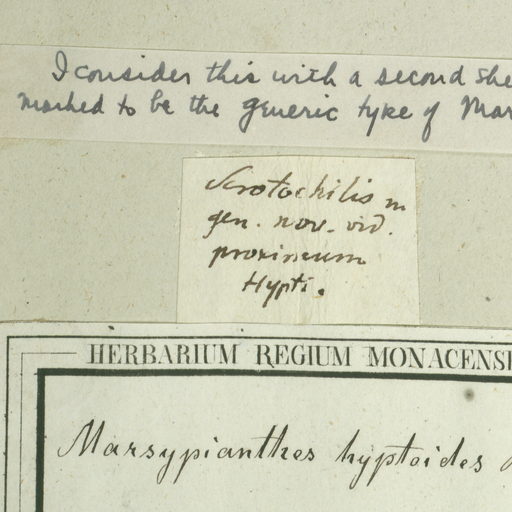 I consider this with a second she
marked to be the generic type of Mar
m
gen. nov. vid.
proximum
Hypti.
HERBARIUM REGIUM MONACENSE
Marsypianthes hyptoides